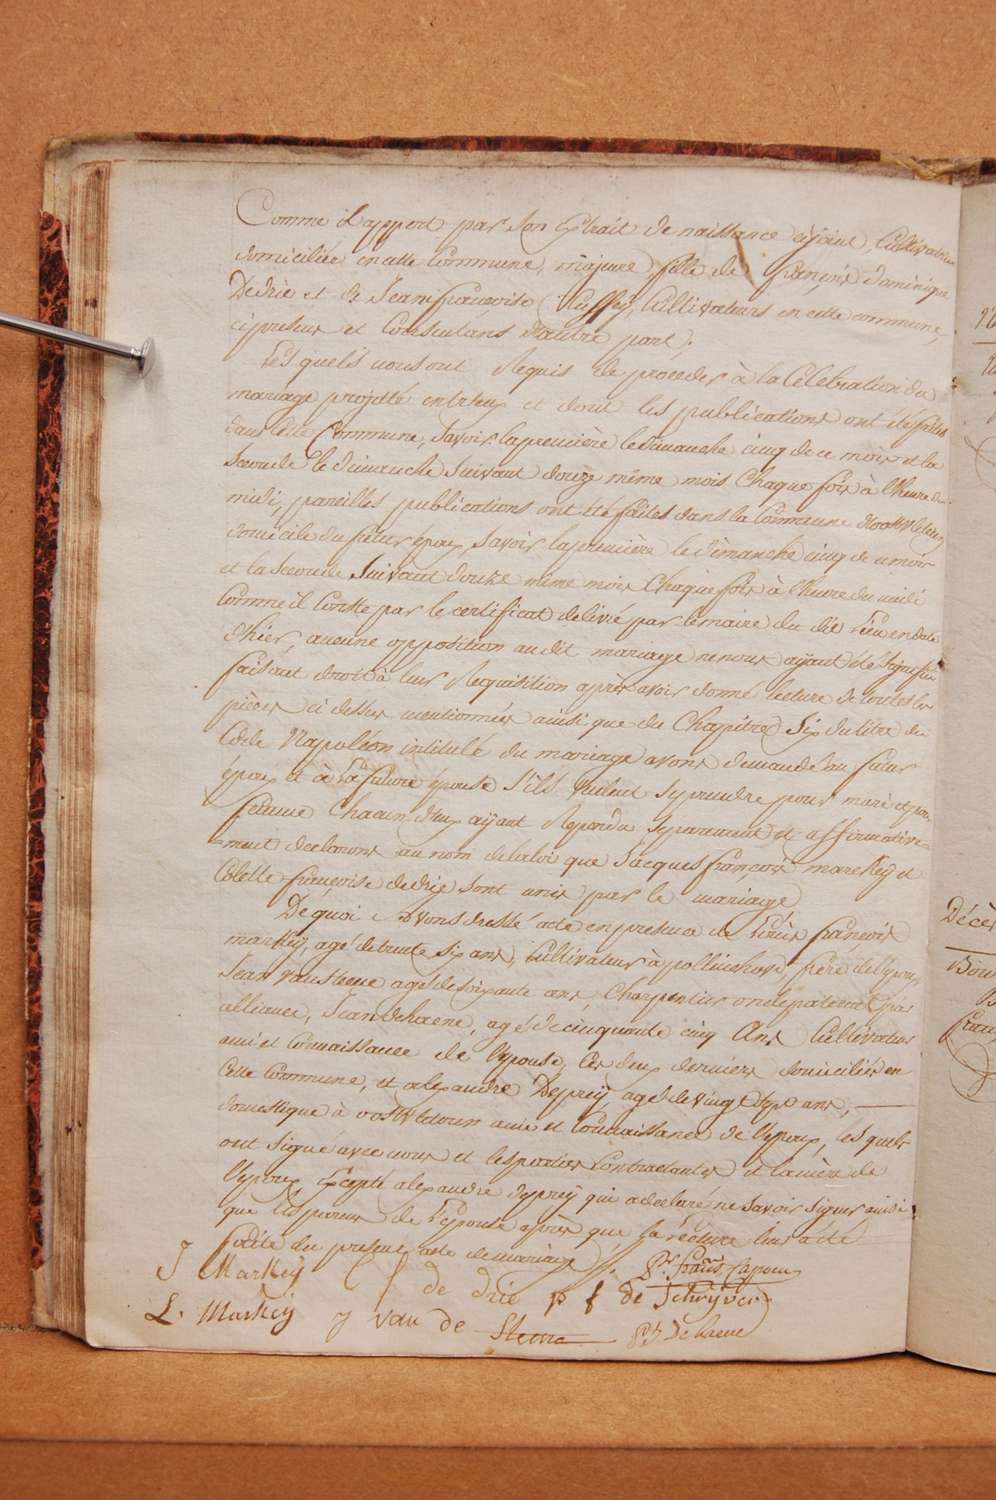 Comme il appert par son Extrait de naissance cijoint, Cultivatrice
domiciliée en cette Commune, majeure fille de françois Dominique
Dedrie et de Jeanne francoise Cultivateurs en cette commune,
ci presens et Consentans d'autre part.
Les quels nous ont Requis de proceder à la Célébration du
mariage projetté entreux et dont les publications ont été faites
dans cette Commune, Savoir la premiere le dimanche cinq de ce mois et la
Seconde le dimanche Suivant douze même mois Chaque fois à l'heure de
midi, pareilles publications ont été faites dans la Commune d'oostvleteren,
domicile du futur époux Savoir la premiere le dimanche cinq de ce mois
et la Seconde Suivant douze même mois Chaque fois à l'heure du midi
Comme il Conste par le certificat delivré par le maire du dit Lieu en date
d'hier, aucune opposition au dit mariage ne nous ayant été Signifiée
faisant droit à leur Requisition après avoir donné lecture de toutes les
pièces ci dessus mentionnées ainsi que du Chapitre Six du titre du
Code Napoléon intitulé du mariage avons demandé au futur
époux et à la future épouse S'ils veulent Se prendre pour mari et pour
femme Chacun d'eux ayant Repondu Separement et affirmative=
=ment declarons au nom de la loi que Jacques françois Markey et
Colette françoise dedrie sont unis par le mariage
De quoi avons dressé acte en presence de Louis françois
markey, agé de trente Six ans, Cultivateur à pollinchove, frère de l'epoux,
Jean Vansteene agé de Soixante ans Charpentier oncle paternel par
alliance, Jean dehaene, agé de cinquante cinq Ans Cultivateur
ami et Connaissance de l'epouse, Ces deux derniers domiciliés en
cette Commune, et alexandre Deprey, agé de vingt Sept ans,
domestique à oostvleteren ami et Connaissance de l'epoux, les quels
ont Signé avec nous et les parties Contractantes et la mère de
l'epoux Excepté alexandre depreÿ qui a declaré ne Savoir Signer ainsi
que les parens de l'epouse après que la lecture leur a été
faite du present acte de mariage
J Markeij C f de drie p f de Schrijver
L. Markeij J van de Steene